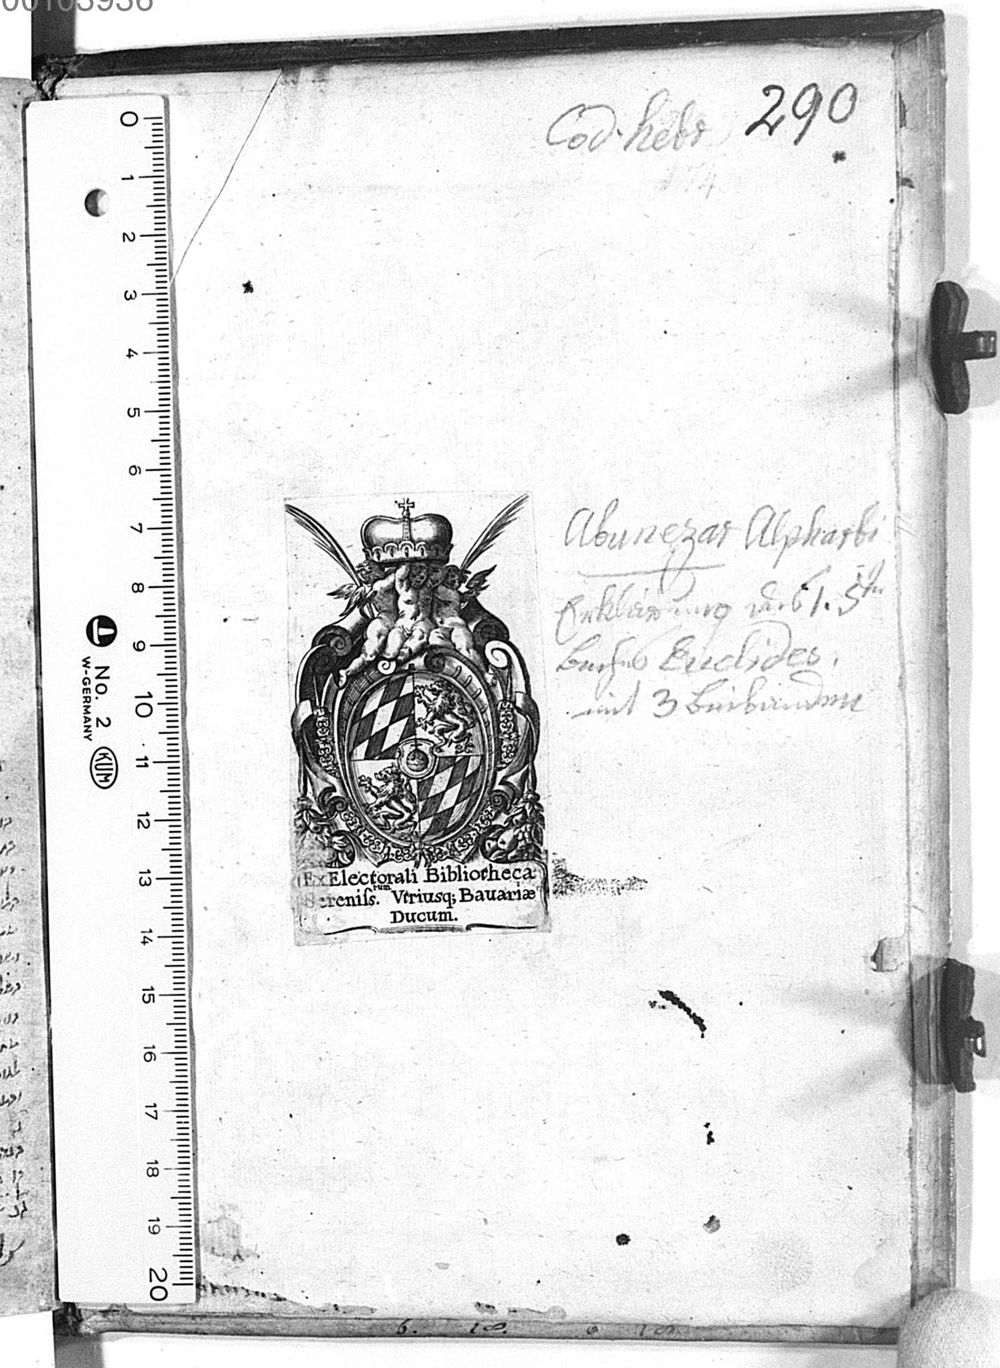 00103936
Cod. hebr 290
Abunezar Alpharbi
Erklärung des 1. 5ten
Buches Euclides.
mit 3 Beibänden
Ex Electorali Bibliotheca
Sereniss.rum Vtriusq; Bauariæ
Ducum.
0
1
2
3
4
5
6
7
8
9
10
11
12
13
14
15
16
17
18
19
20
No. 2
W-GERMANY
KUM
6. 18. 6 18